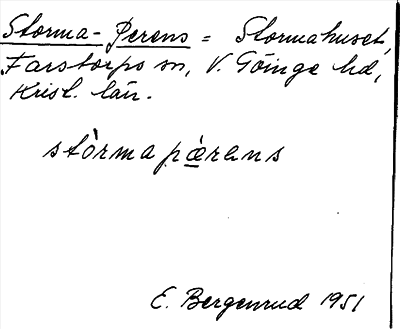 Storma-Perens = Stormahuset,
Farstorps sn, V. Göinge hd,
Krist. län.
stòrma pær̀ens
E. Bergenrud 1951